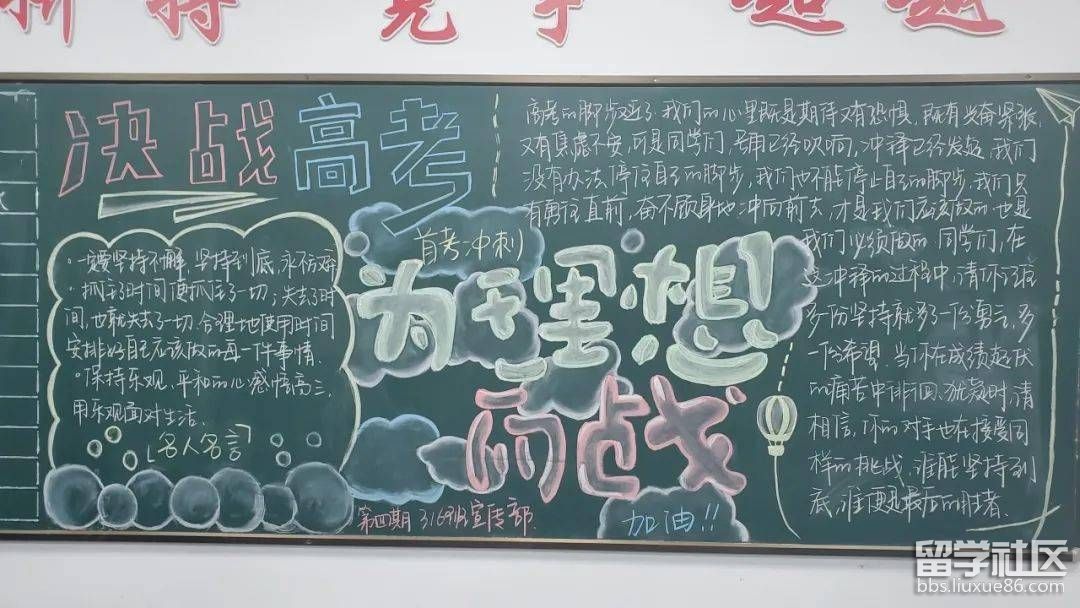 竞 争 超 越
决战高考
首考冲刺
为理想
而战
加油!!
第四期 316班宣传部
·一定要坚持不懈,坚持到底,永不放弃
·抓住了时间便抓住了一切;失去了时
间,也就失去了一切.合理地使用时间
安排好自己应该做的每一件事情.
·保持乐观、平和的心感悟高三,
用乐观面对生活.
名人名言
高考的脚步近了.我们的心里既是期待又有恐惧,既有兴奋紧张,
又有焦虑不安,可是同学们,号角已经吹响,冲锋已经发起,我们
没有办法停住自己的脚步,我们也不能停止自己的脚步,我们只
有勇往直前,奋不顾身地冲向前去,才是我们应该做的.也是
我们必须做的.同学们,在
这冲锋的过程中,请你记住
多一份坚持就多了一份勇气,多
一份希望.当你在成绩起伏
的痛苦中徘徊、犹疑时,请
相信,你的对手也在接受同
样的挑战,谁能坚持到
底,谁便是最后的胜者.
留学社区
bbs.liuxue86.com